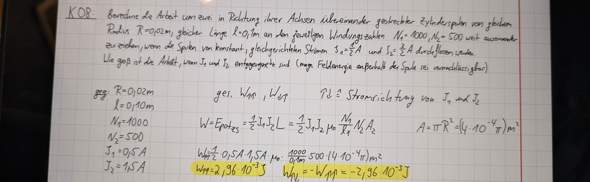 K08 Berechne die Arbeit um zwei in Richtung ihrer Achsen übereinander gesteckter Zylinderspulen von gleichem
Radius R=0,02m, gleicher Länge l=0,1m an den jeweiligen Windungszahlen N₁=1000, N₂=500 weit auseinander
zu ziehen, wenn die Spulen von konstant, gleichgerichteten Strömen I₁=½A und I₂=3/2 A durchflossen werden.
Wie groß ist die Arbeit, wenn I₁ und I₂ entgegengesetzt sind (magn. Feldenergie außerhalb der Spule sei vernachlässigbar)
geg: R=0,02m ges. W↑↑, W↑↓ ↑↓ ≙ Stromrichtung von I₁ und I₂
l=0,10m
N₁=1000 W=Epot = ½ I₁I₂L = ½ I₁I₂ μ₀ N₁/l₁ N₂A₂ A=πR²=(4·10⁻⁴π)m²
N₂=500
I₁=0,5A W↑↑=½ 0,5A·1,5A μ₀ · 1000/0,1m 500·(4·10⁻⁴π)m²
I₂=1,5A W↑↑=2,96·10⁻³J W↑↓=-W↑↑=-2,96·10⁻³J